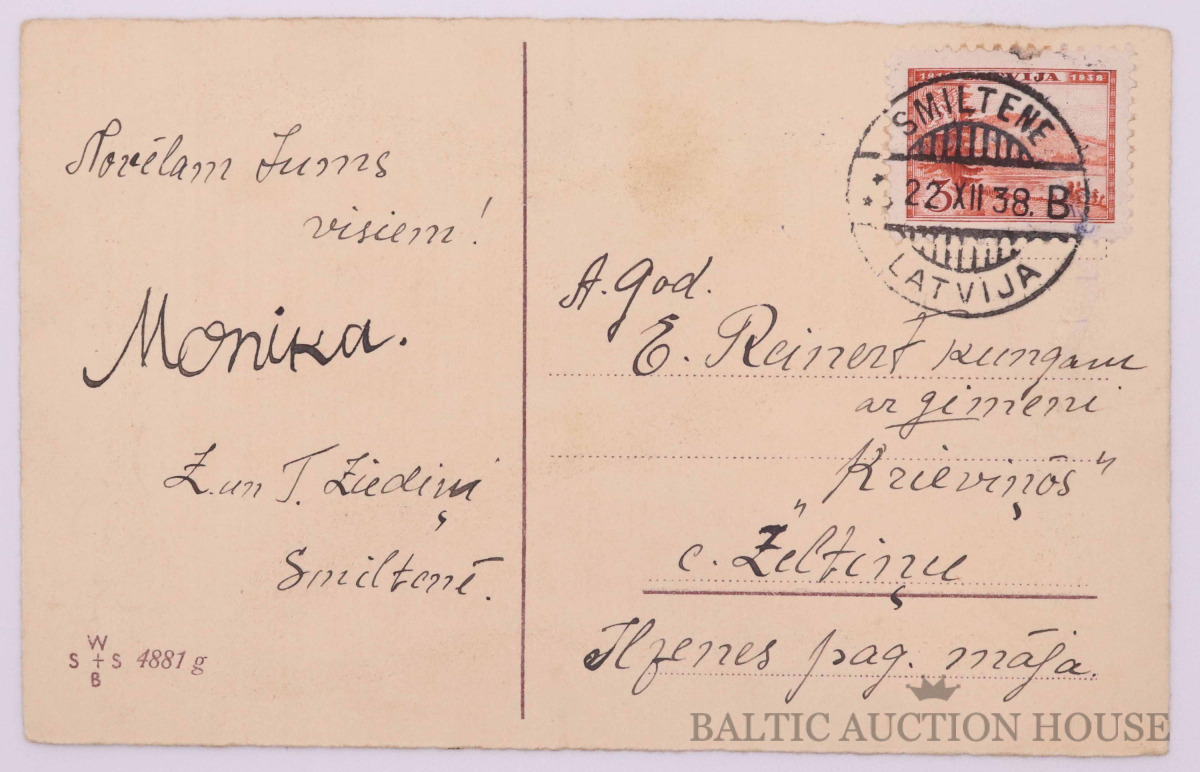 Novēlam Jums
visiem!
Monika.
Z. un T. Ziediņi
Smiltenē.
W
S + S 4881 g
B
LATVIJA 1938
SMILTENE
22 XII 38. B
LATVIJA
A. God.
E. Reinert kungam
ar ģimeni
„Krieviņôs”
c. Zeltiņu
Ilzenes pag. māja.
BALTIC AUCTION HOUSE